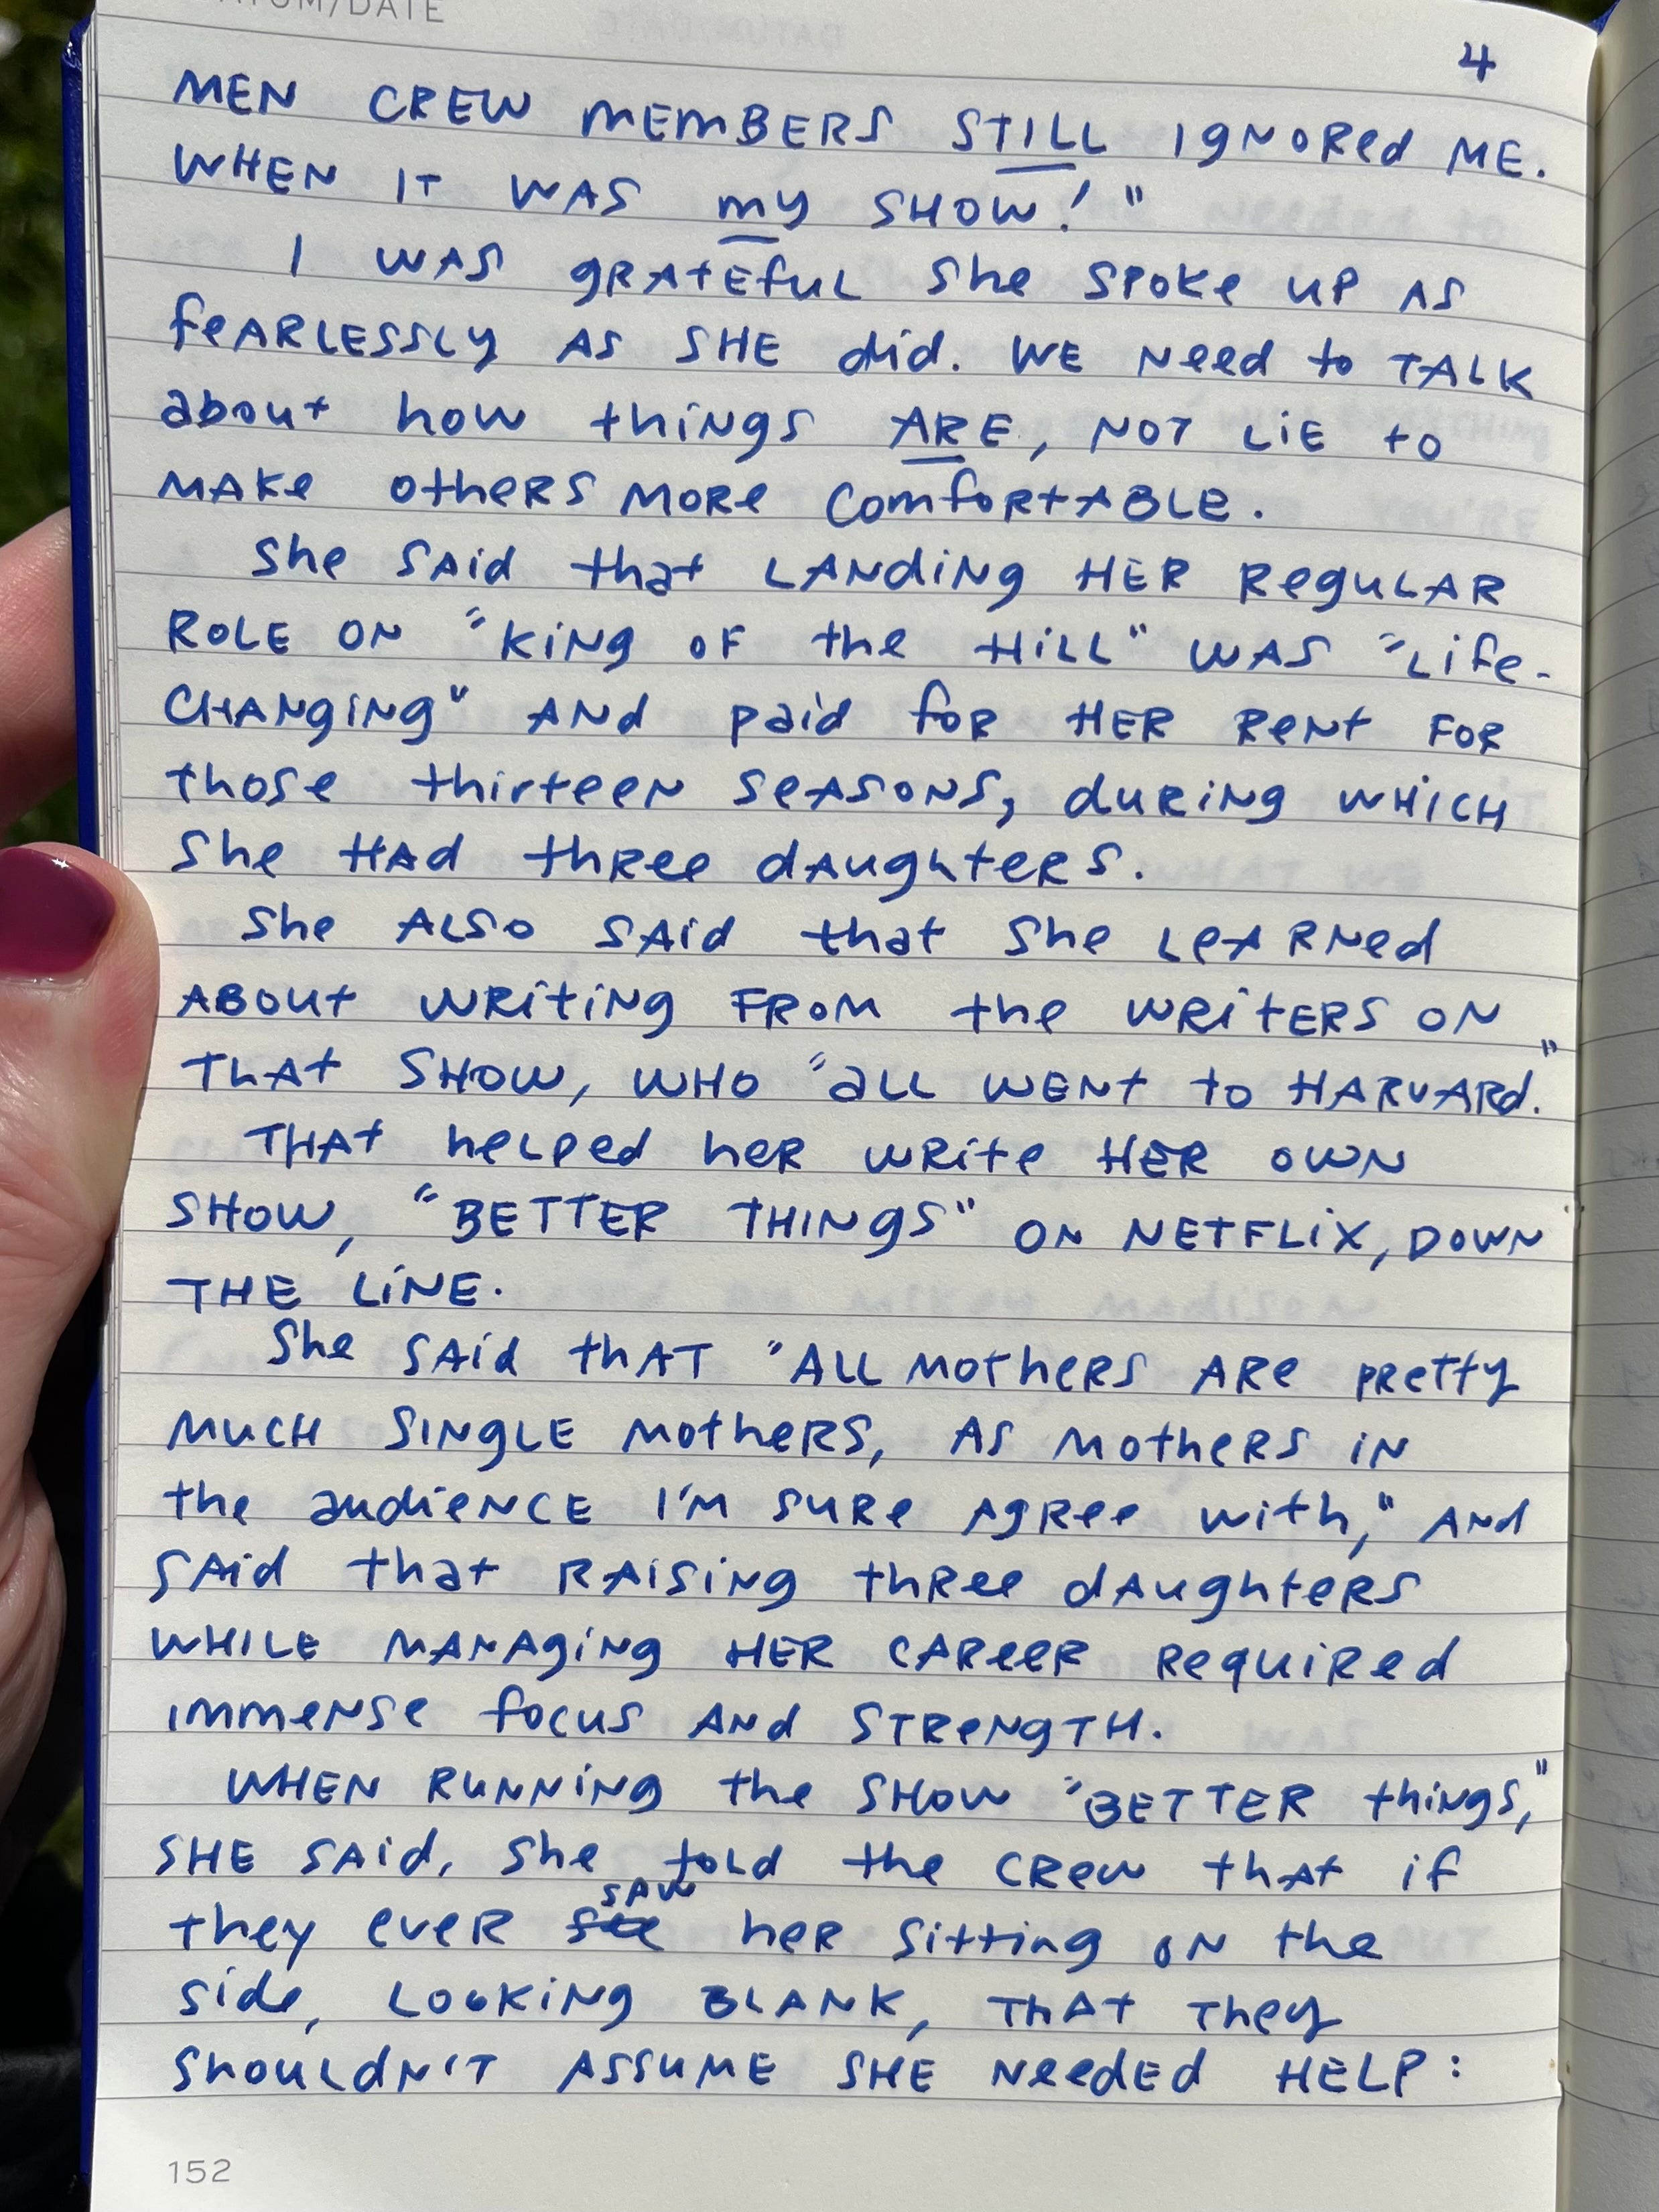 DATUM/DATE
4
MEN CREW MEMBERS STILL IGNORED ME.
WHEN IT WAS MY SHOW!"
I WAS GRATEFUL SHE SPOKE UP AS
FEARLESSLY AS SHE DID. WE NEED TO TALK
ABOUT HOW THINGS ARE, NOT LIE TO
MAKE OTHERS MORE COMFORTABLE.
SHE SAID THAT LANDING HER REGULAR
ROLE ON "KING OF THE HILL" WAS "LIFE-
CHANGING" AND PAID FOR HER RENT FOR
THOSE THIRTEEN SEASONS, DURING WHICH
SHE HAD THREE DAUGHTERS.
SHE ALSO SAID THAT SHE LEARNED
ABOUT WRITING FROM THE WRITERS ON
THAT SHOW, WHO "ALL WENT TO HARVARD."
THAT HELPED HER WRITE HER OWN
SHOW, "BETTER THINGS" ON NETFLIX, DOWN
THE LINE.
SHE SAID THAT "ALL MOTHERS ARE PRETTY
MUCH SINGLE MOTHERS, AS MOTHERS IN
THE AUDIENCE I'M SURE AGREE WITH," AND
SAID THAT RAISING THREE DAUGHTERS
WHILE MANAGING HER CAREER REQUIRED
IMMENSE FOCUS AND STRENGTH.
WHEN RUNNING THE SHOW "BETTER THINGS,"
SHE SAID, SHE TOLD THE CREW THAT IF
THEY EVER SAW HER SITTING ON THE
SIDE, LOOKING BLANK, THAT THEY
SHOULDN'T ASSUME SHE NEEDED HELP:
152